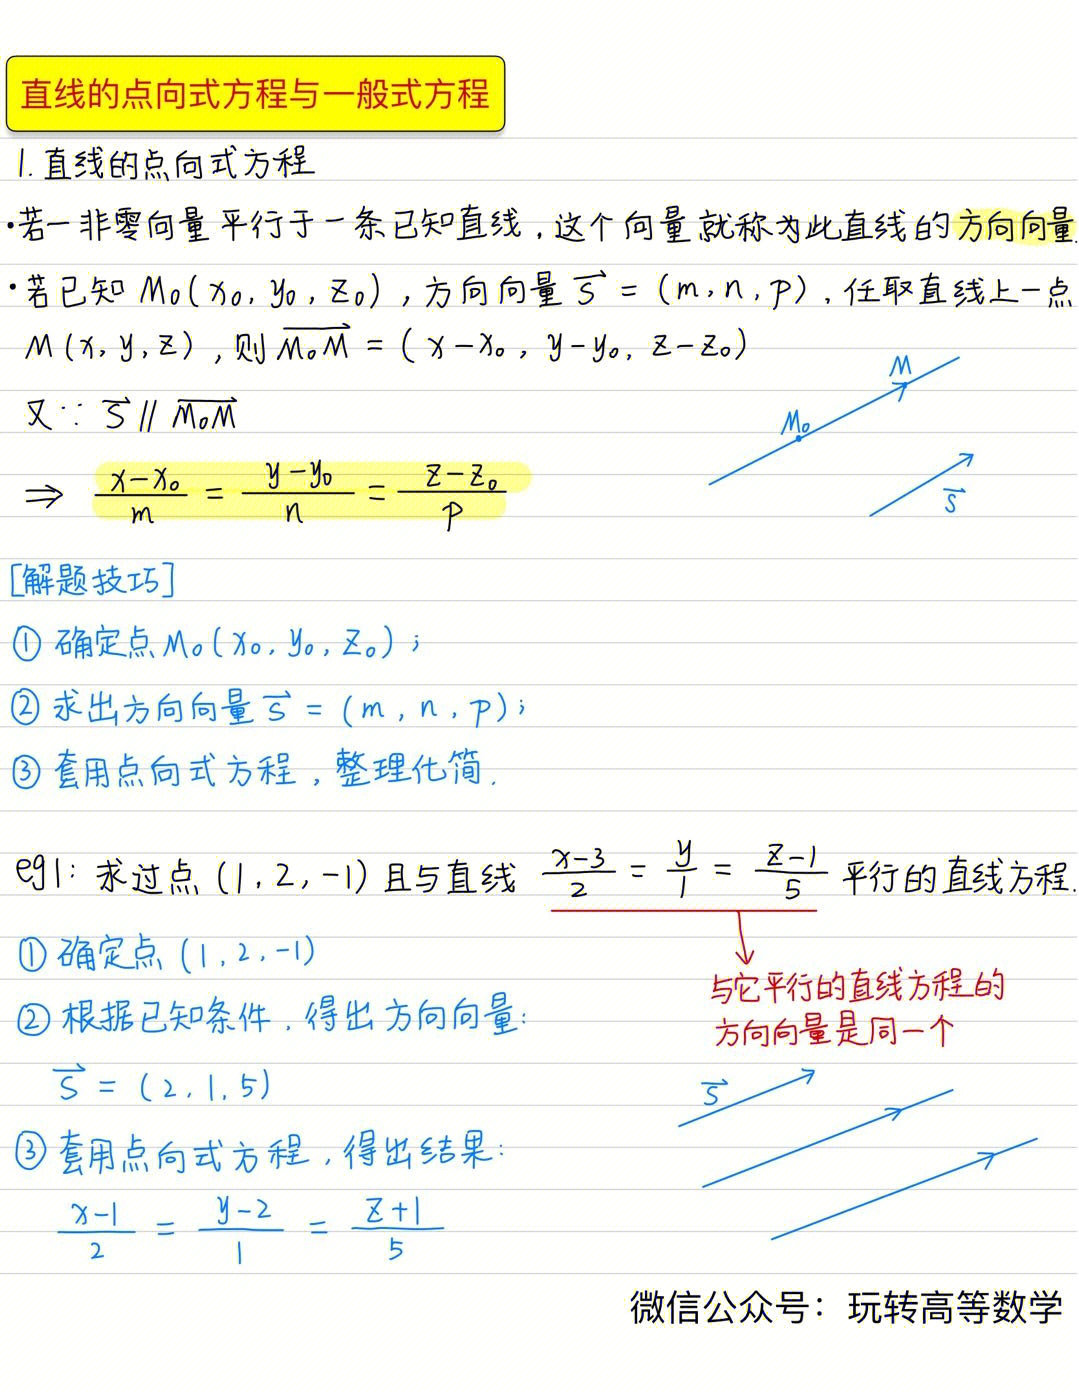 直线的点向式方程与一般式方程
1. 直线的点向式方程
·若一非零向量平行于一条已知直线,这个向量就称为此直线的方向向量.
·若已知 M₀(x₀, y₀, z₀),方向向量 s⃗ = (m, n, p),任取直线上一点
M(x, y, z),则 \overrightarrow{M₀M} = (x-x₀, y-y₀, z-z₀)
又∵ s⃗ // \overrightarrow{M₀M}
⇒ \frac{x-x₀}{m} = \frac{y-y₀}{n} = \frac{z-z₀}{p}
M
M₀
s⃗
[解题技巧]
① 确定点 M₀(x₀, y₀, z₀);
② 求出方向向量 s⃗ = (m, n, p);
③ 套用点向式方程,整理化简.
eg1: 求过点 (1, 2, -1) 且与直线 \frac{x-3}{2} = \frac{y}{1} = \frac{z-1}{5} 平行的直线方程.
与它平行的直线方程的
方向向量是同一个
① 确定点 (1, 2, -1)
② 根据已知条件,得出方向向量:
s⃗ = (2, 1, 5)
s⃗
③ 套用点向式方程,得出结果:
\frac{x-1}{2} = \frac{y-2}{1} = \frac{z+1}{5}
微信公众号:玩转高等数学